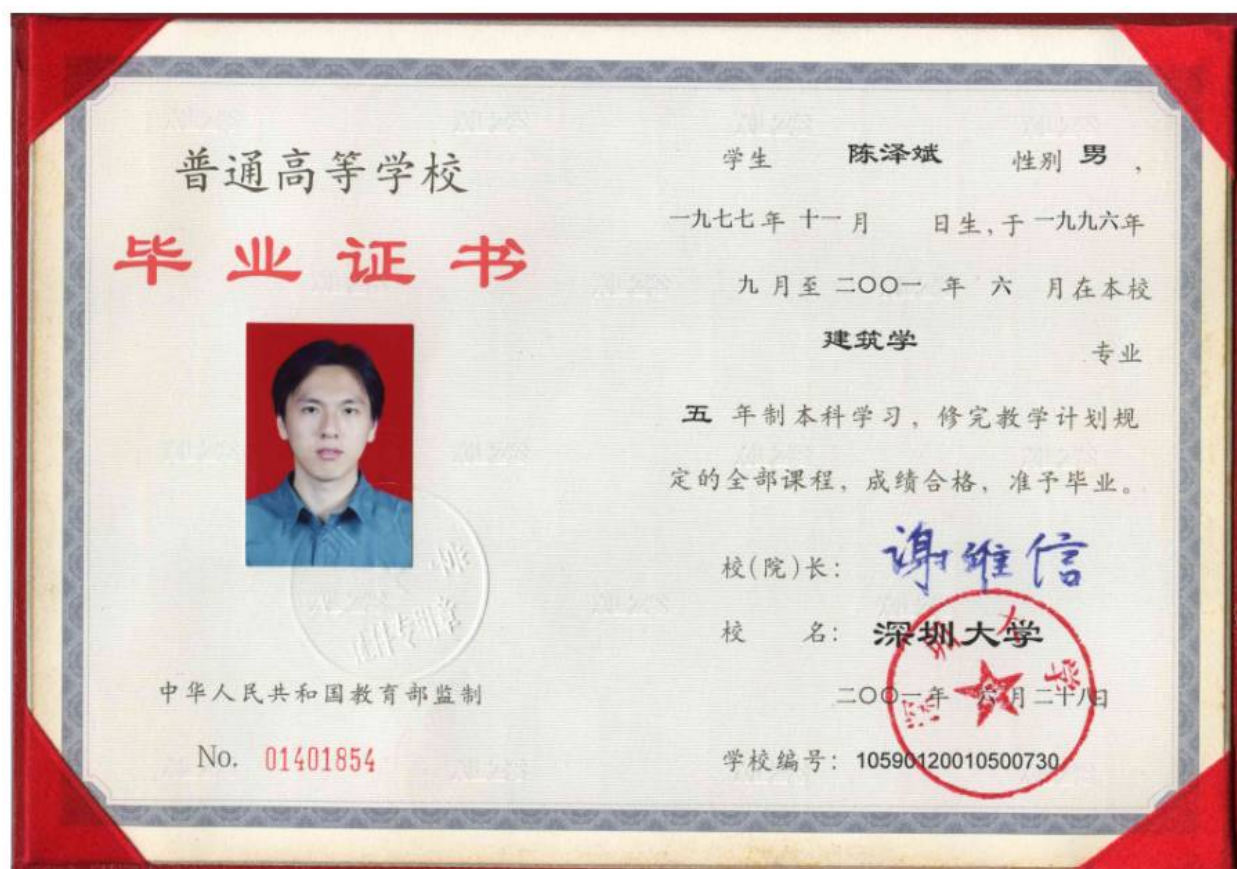 普通高等学校
毕业证书
中华人民共和国教育部监制
No. 01401854
学生 陈泽斌 性别 男，
一九七七年 十一月 日生，于 一九九六年
九 月至 二〇〇一 年 六 月在本校
建筑学 专业
五 年制本科学习，修完教学计划规
定的全部课程，成绩合格，准予毕业。
校(院)长： 谢维信
校 名： 深圳大学
二〇〇一年 六月二十八日
学校编号：10590120010500730
深圳大学